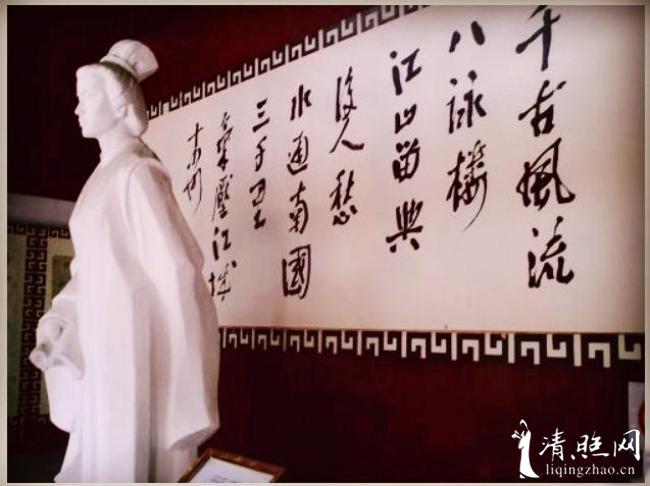 千古風流
八詠樓
江山留與
後人愁
水通南國
三千里
氣壓江城
十四州
清照网
liqingzhao.cn